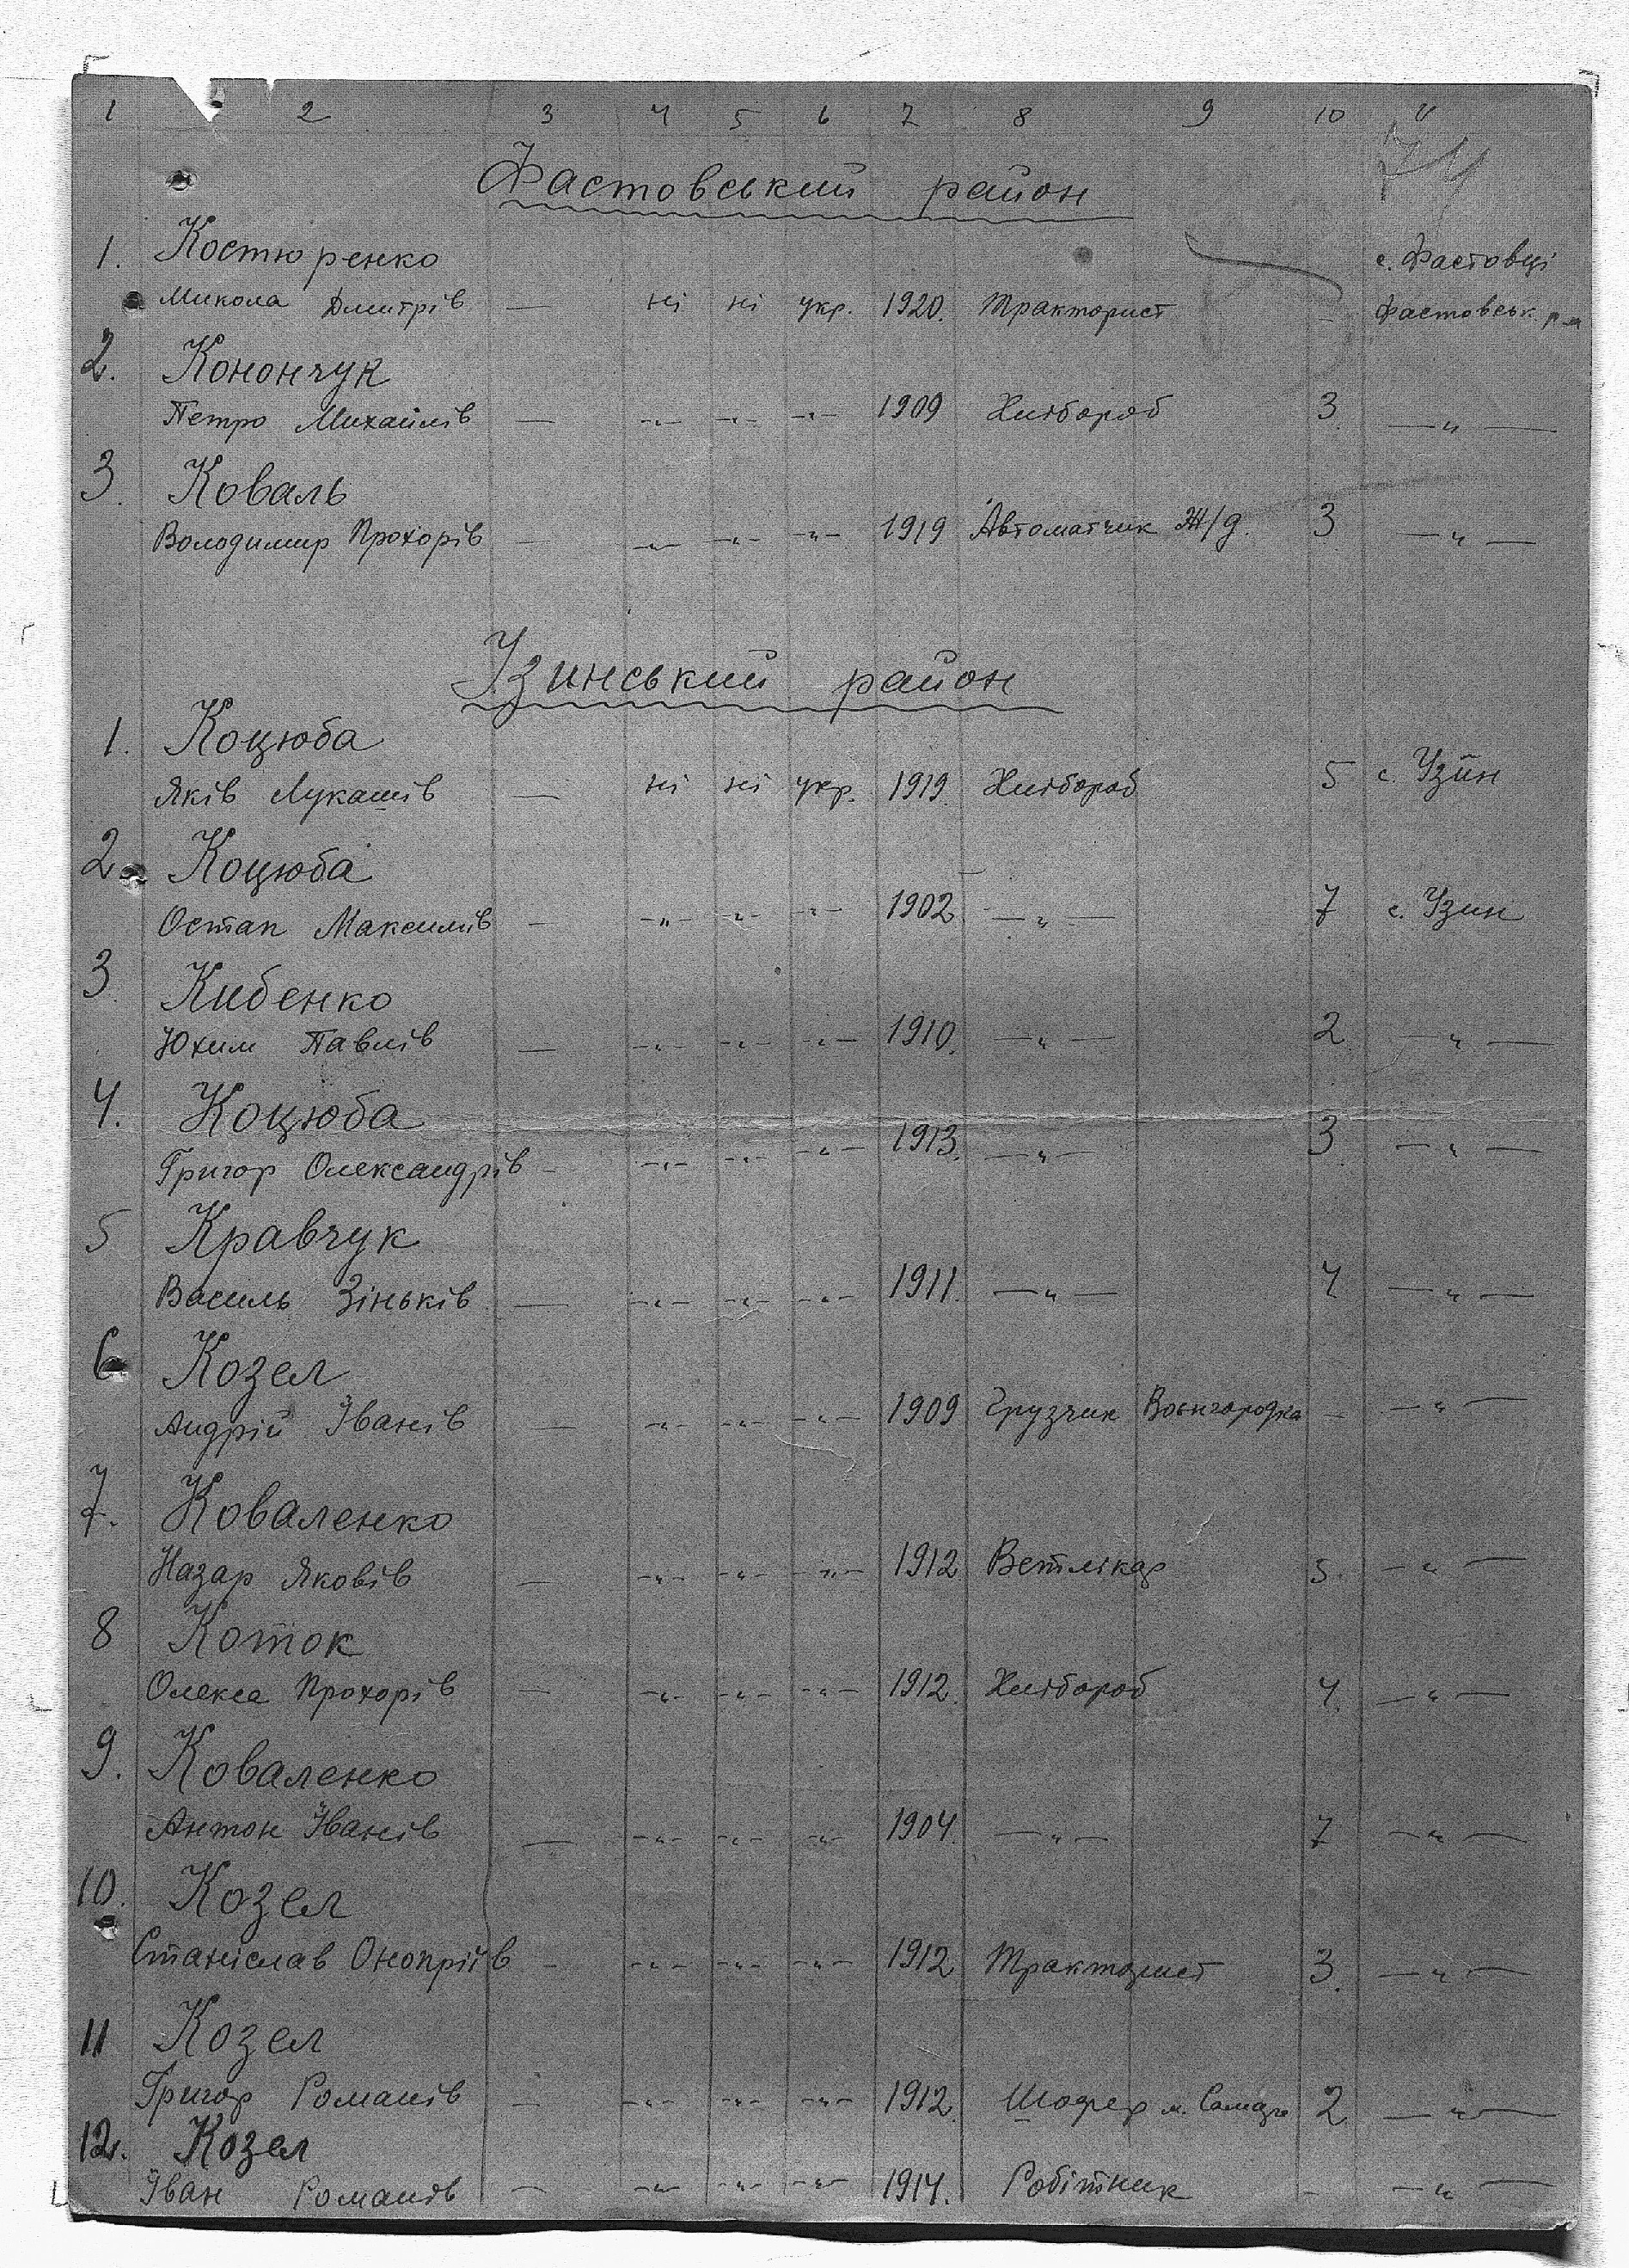 1 2 3 4 5 6 7 8 9 10 11
74
Фастовський район
1. Костюренко с. Фастовці
Микола Дмитрів — ні ні укр. 1920. Тракторист - Фастовськ. р-н
2. Конончук
Петро Михайлів — -"- -"- -"- 1909 Хлібороб 3 —"—
3. Коваль
Володимир Прохорів — -"- -"- -"- 1919 Автоматчик Ж/д. 3 —"—
Узинський район
1. Коцюба
Яків Лукашів — ні ні укр. 1919. Хлібороб 5 с. Узин
2. Коцюба
Остап Максимів — -"- -"- -"- 1902 —"— 7 с. Узин
3. Кибенко
Юхим Павлів — -"- -"- -"- 1910. —"— 2 —"—
4. Коцюба
Григор Олександрів - -"- -"- -"- 1913. —"— 3 —"—
5 Кравчук
Василь Зіньків — -"- -"- -"- 1911. —"— 4 —"—
6 Козел
Андрій Іванів — -"- -"- -"- 1909 Грузчик - —"—
7. Коваленко
Назар Яковів — -"- -"- -"- 1912 Ветлікар 5. —"—
8 Коток
Олекса Прохорів — -"- -"- -"- 1912. Хлібороб 4. —"—
9. Коваленко
Антон Іванів — -"- -"- -"- 1904. —"— 7 —"—
10. Козел
Станіслав Онопріїв - -"- -"- -"- 1912 Тракторист 3. —"—
11 Козел
Григор Романів — -"- -"- -"- 1912. Шофер м. 2 —"—
12. Козел
Іван Романів — -"- -"- -"- 1914. Робітник - —"—